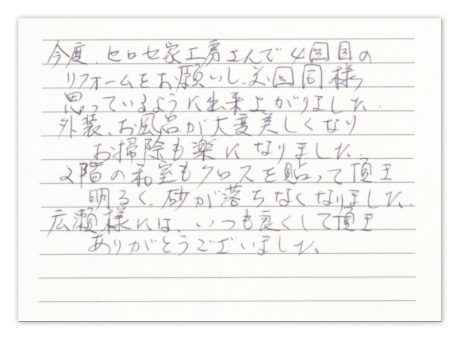 今度、ヒロセ家工房さんで4回目の
リフォームをお願いし、前回同様
思っているように出来上がりました。
外装、お風呂が大変美しくなり
お掃除も楽になりました。
2階の和室もクロスを貼って頂き
明るく、砂が落ちなくなりました。
広瀬様には、いつも良くして頂き
ありがとうございました。